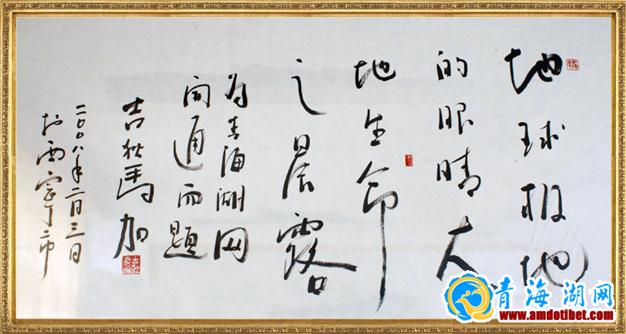 地球极地
的眼睛大
地生命
之晨露
为青海湖网
開通而题
吉狄馬加
二〇〇八年二月三日
於西宁市
青海湖网
www.amdotibet.com